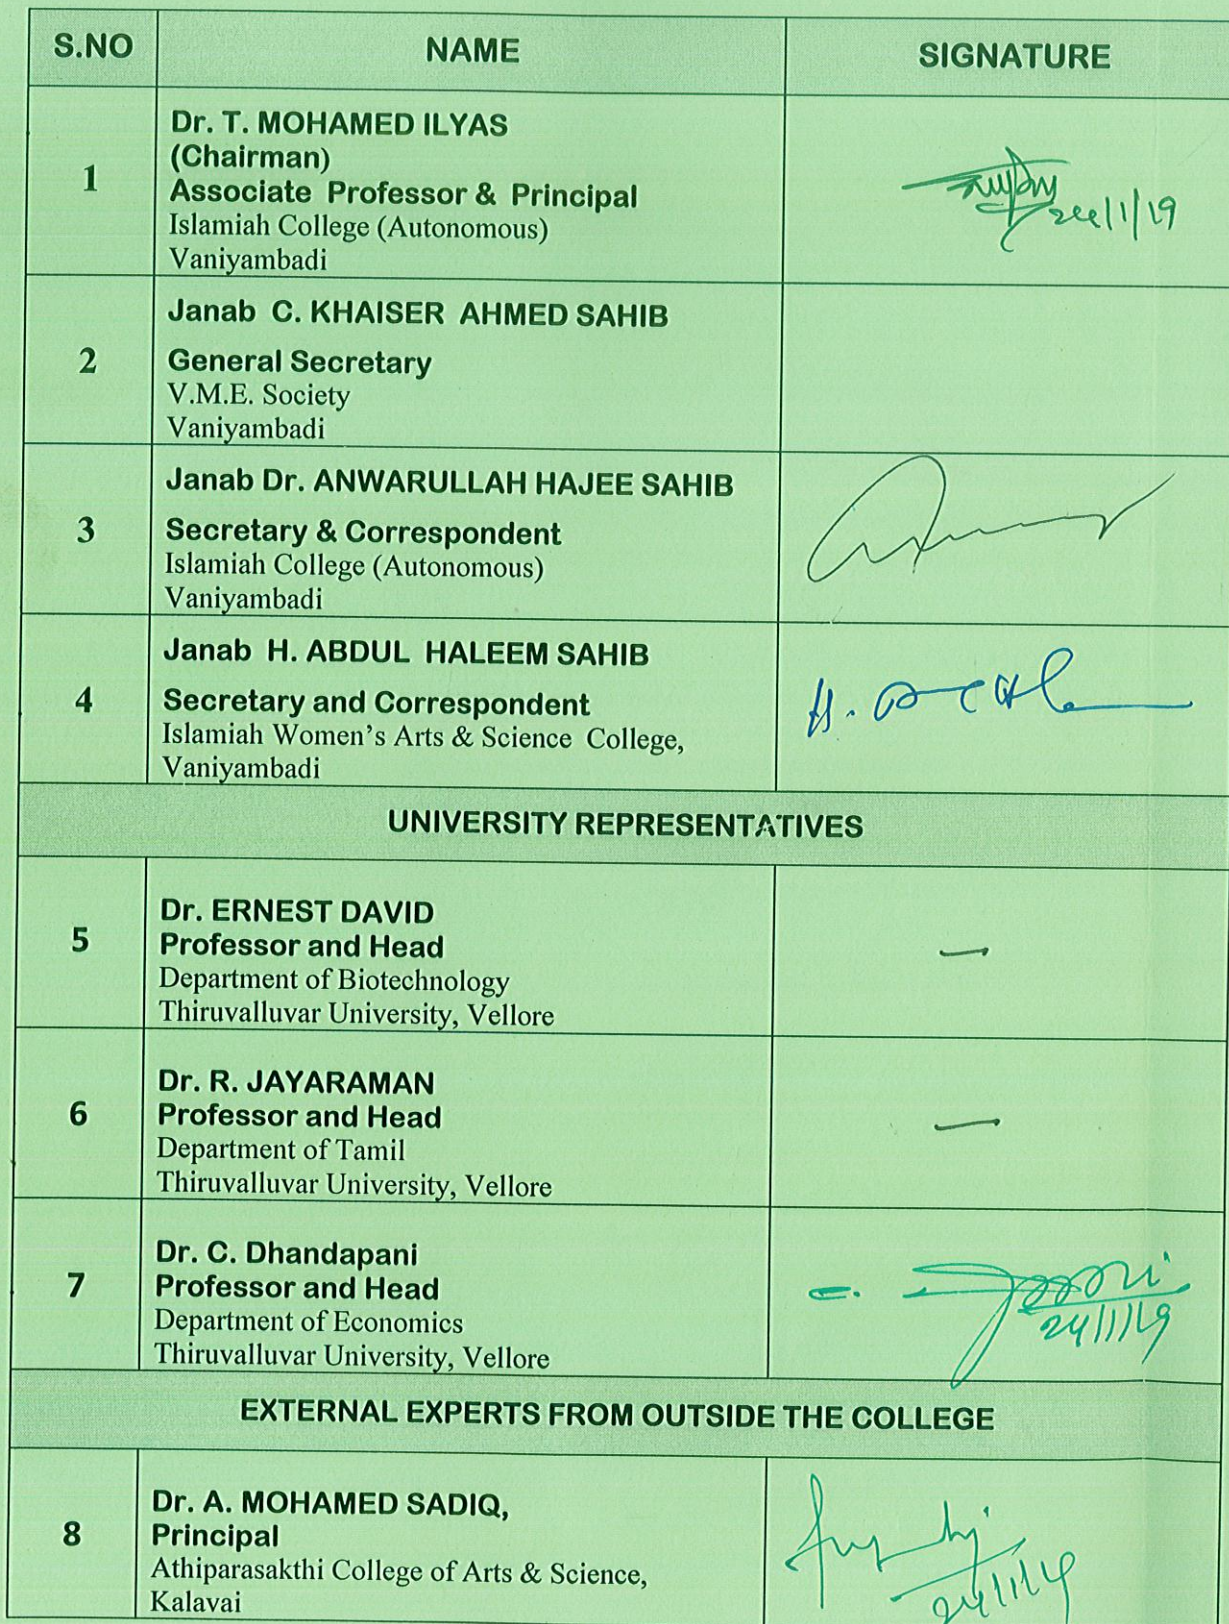 S.NO NAME SIGNATURE
1
Dr. T. MOHAMED ILYAS
(Chairman)
Associate Professor & Principal
Islamiah College (Autonomous)
Vaniyambadi
24/1/19
2
Janab C. KHAISER AHMED SAHIB
General Secretary
V.M.E. Society
Vaniyambadi
3
Janab Dr. ANWARULLAH HAJEE SAHIB
Secretary & Correspondent
Islamiah College (Autonomous)
Vaniyambadi
4
Janab H. ABDUL HALEEM SAHIB
Secretary and Correspondent
Islamiah Women's Arts & Science College,
Vaniyambadi
H.
UNIVERSITY REPRESENTATIVES
5
Dr. ERNEST DAVID
Professor and Head
Department of Biotechnology
Thiruvalluvar University, Vellore
—
6
Dr. R. JAYARAMAN
Professor and Head
Department of Tamil
Thiruvalluvar University, Vellore
—
7
Dr. C. Dhandapani
Professor and Head
Department of Economics
Thiruvalluvar University, Vellore
C.
24/1/19
EXTERNAL EXPERTS FROM OUTSIDE THE COLLEGE
8
Dr. A. MOHAMED SADIQ,
Principal
Athiparasakthi College of Arts & Science,
Kalavai
24/1/19